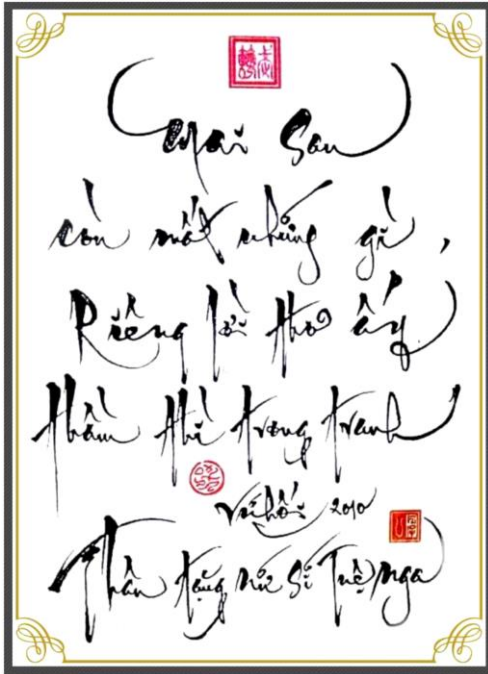 Mai Sau
còn mất những gì,
Riêng lời thơ ấy
thầm thì trong tranh
Vũ Hối 2010
Thân tặng nữ sĩ Tuệ Nga